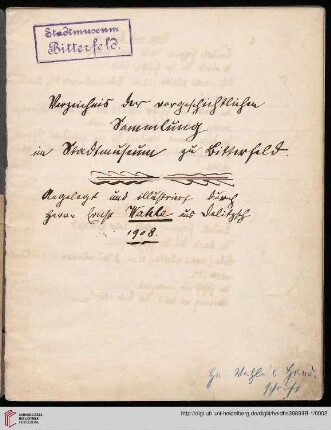 Stadtmuseum
Bitterfeld.
Verzeichnis der vorgeschichtlichen
Sammlung
im Stadtmuseum zu Bitterfeld.
Angelegt und illustriert durch
Herrn Ernst Wahle aus Delitzsch
1908.
UNIVERSITÄTS-
BIBLIOTHEK
HEIDELBERG
http://digi.ub.uni-heidelberg.de/diglit/heidhs3989IIB-1/0003